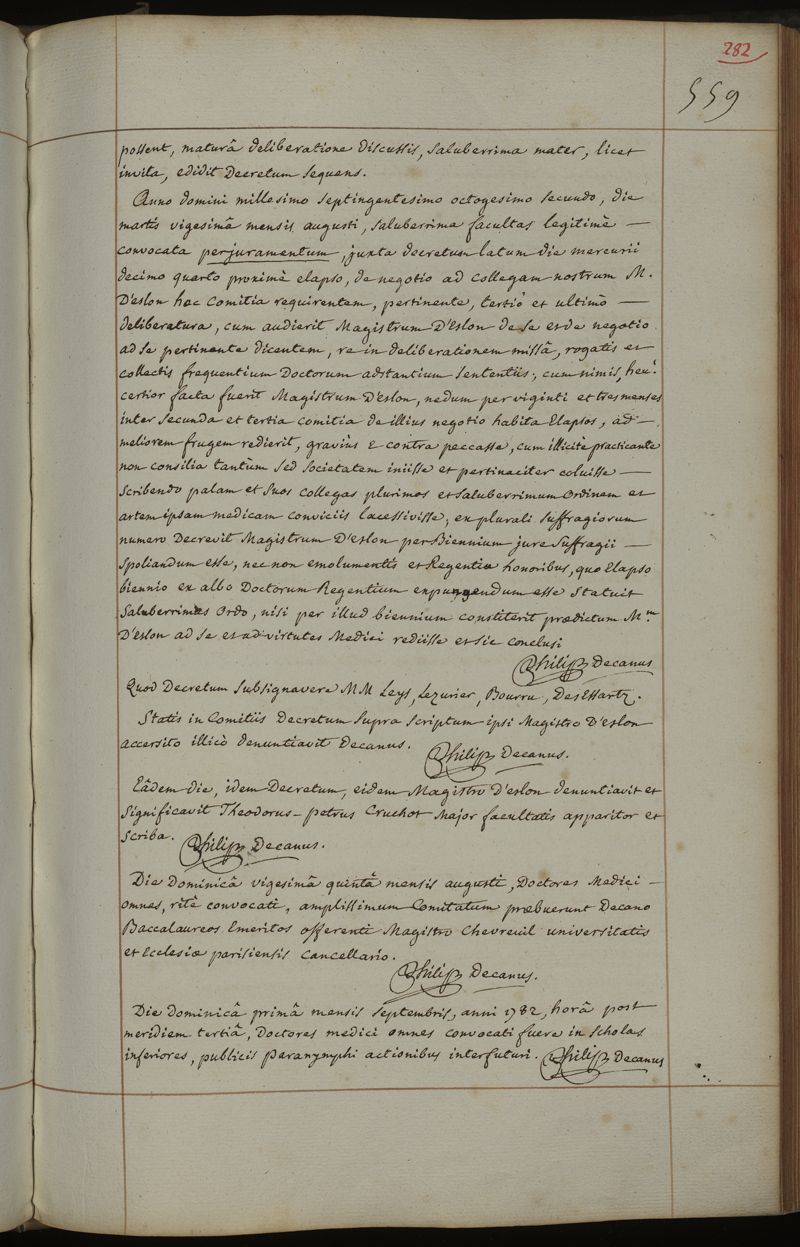 282
559
possent, maturâ deliberatione discussis, saluberrima mater, licet
invita, edidit Decretum sequens.
Anno domini millesimo septingentesimo octogesimo secundo, die
martis vigesimâ mensis augusti, saluberrima facultas legitimè —
convocata per juramentum, juxta decretum latum die mercurii
decimo quarto proximè elapso, de negotio ad collegam nostrum M.
D'eslon hæc Comitia requirentem, pertinente, tertiò et ultimò —
deliberatura, cum audierit Magistrum D'eslon de se et de negotio
ad se pertinente dicentem, re in deliberationem missâ, rogatis et
collectis frequentium Doctorum adstantium sententiis; cum nimis, heu!
certior facta fuerit Magistrum D'eslon, nedum per viginti et tres menses
inter secunda et tertia comitia de illius negotio habita Elapsos, ad —
meliorem frugem redierit, graviùs è contra peccasse, cum illicitè practicante
non consilia tantùm sed societatem iniisse et pertinaciter coluisse —
scribendo palam et suos collegas plurimos et saluberrimum ordinem et
artem ipsam medicam conviciis lacessivisse, ex plurali suffragiorum
numero Decrevit Magistrum D'eslon per Biennium jure suffragii —
spoliandum esse, nec non emolumentis et Regentiæ honoribus, quo Elapso
biennio ex albo Doctorum Regentium expungendum esse statuit
Saluberrimus Ordo, nisi per illud biennium constiterit prædictum Mm
D'eslon ad se et ad virtutes Medici rediisse et sic conclusi
Philip Decanus
Quod Decretum subsignavere MM Leys, Lezurier, Bourru, Des Essartz.
Statis in Comitiis Decretum supra scriptum ipsi Magistro D'eslon
accersito illicò denuntiavit Decanus.
Philip Decanus.
Eâdem die, idem Decretum, eidem Magistro D'eslon denuntiavit et
significavit Theodorus-petrus Cruchot Major facultatis apparitor et
scriba. Philip Decanus.
Die Dominicâ vigesimâ quintâ mensis augusti, Doctores Medici —
omnes, ritè convocati, amplissimum Comitatum præbuerunt Decano
Baccalaureos Emeritos offerenti Magistro Chevreuil universitatis
et Ecclesiæ parisiensis Cancellario.
Philip Decanus.
Die Dominicâ primâ mensis septembris, anni 1782, horâ post
meridiem tertiâ, Doctores medici omnes convocati fuere in scholas
inferiores, publicis paranymphi actionibus interfuturi. Philip Decanus